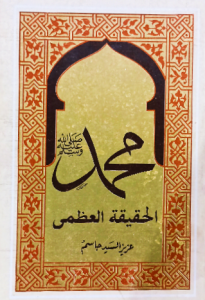 محمد
صلى الله عليه وسلم
الحقيقة العظمى
عزيز السيد جاسم